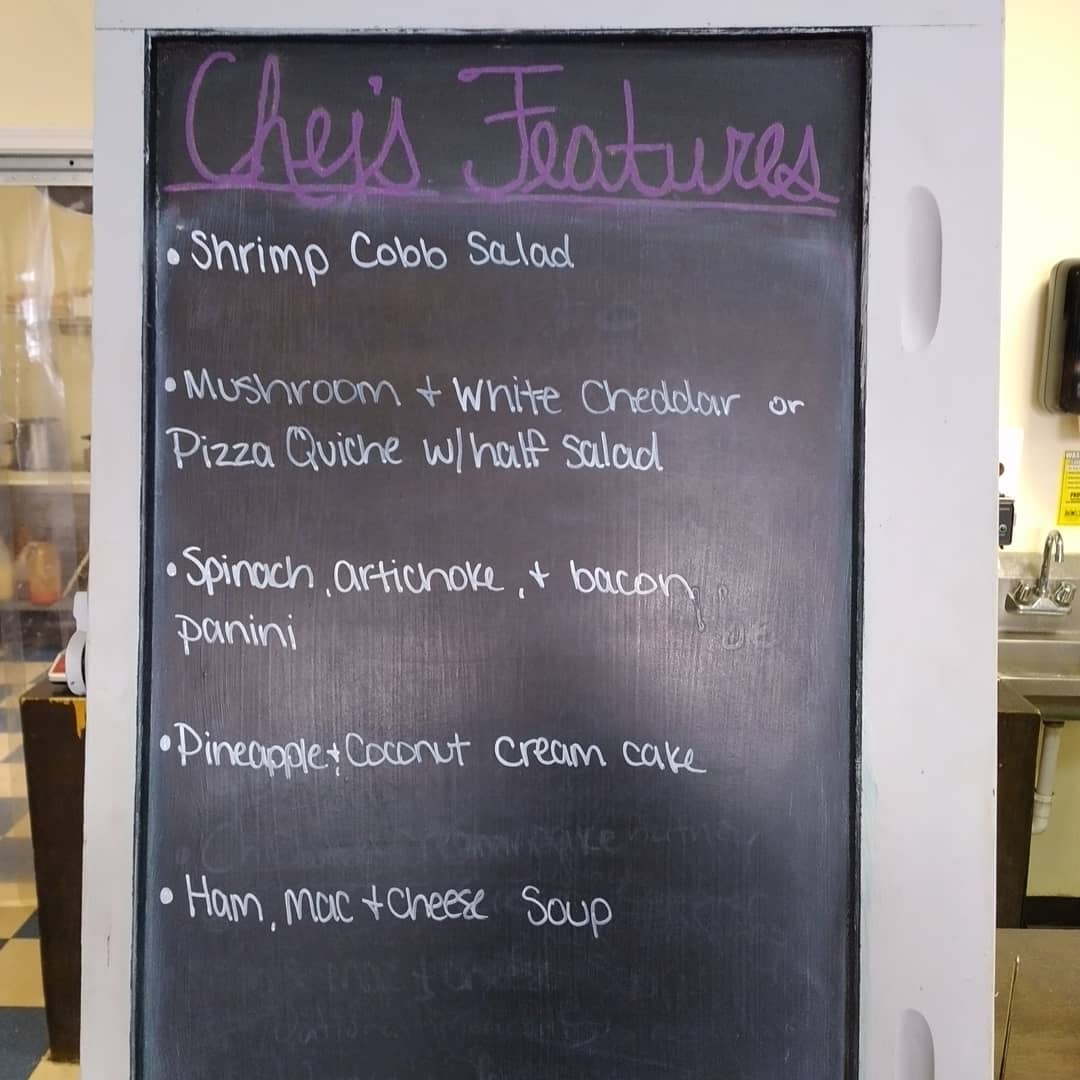 Chef's Features
• Shrimp Cobb Salad
• Mushroom + White Cheddar or
Pizza Quiche w/ half salad
• Spinach, artichoke, + bacon
panini
• Pineapple + Coconut cream cake
• Ham, Mac + Cheese Soup